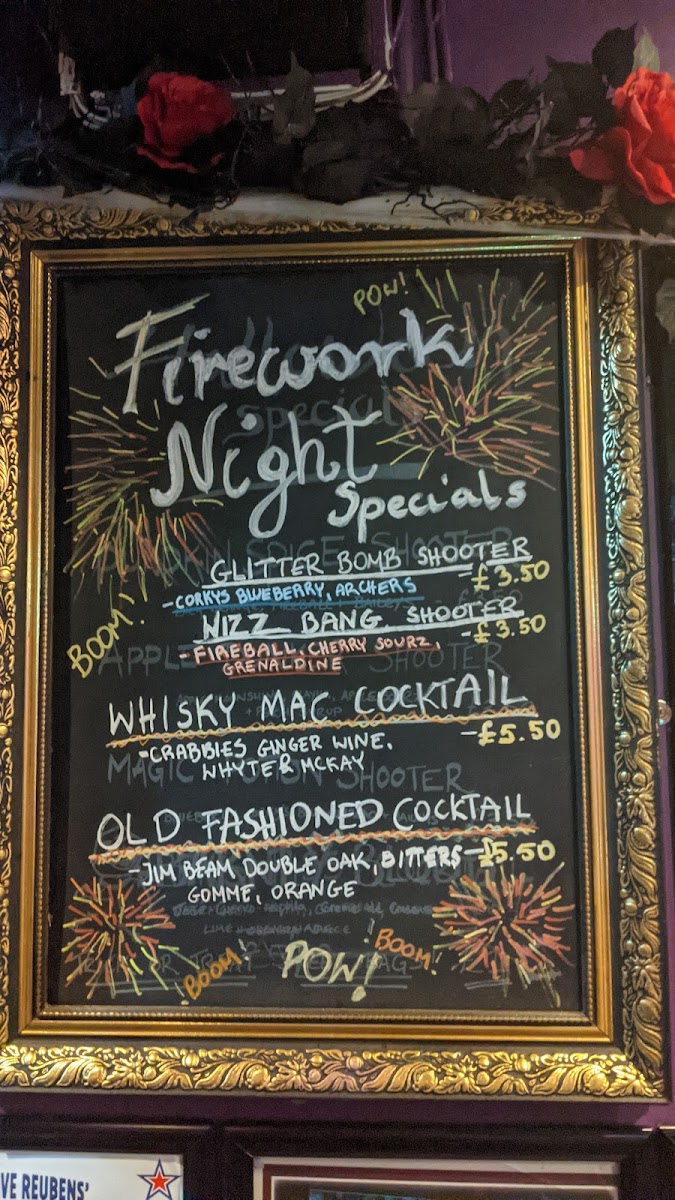 POW!
Firework
Night
Specials
GLITTER BOMB SHOOTER
-£3.50
-CORKYS BLUEBERRY, ARCHERS
WIZZ BANG SHOOTER
-£3.50
-FIREBALL, CHERRY SOURZ,
GRENALDINE
BOOM!
WHISKY MAC COCKTAIL
-£5.50
-CRABBIES GINGER WINE,
WHYTE & MCKAY
OLD FASHIONED COCKTAIL
-JIM BEAM DOUBLE OAK, BITTERS -£5.50
GOMME, ORANGE
BOOM!
POW!
BOOM!
VE REUBENS'